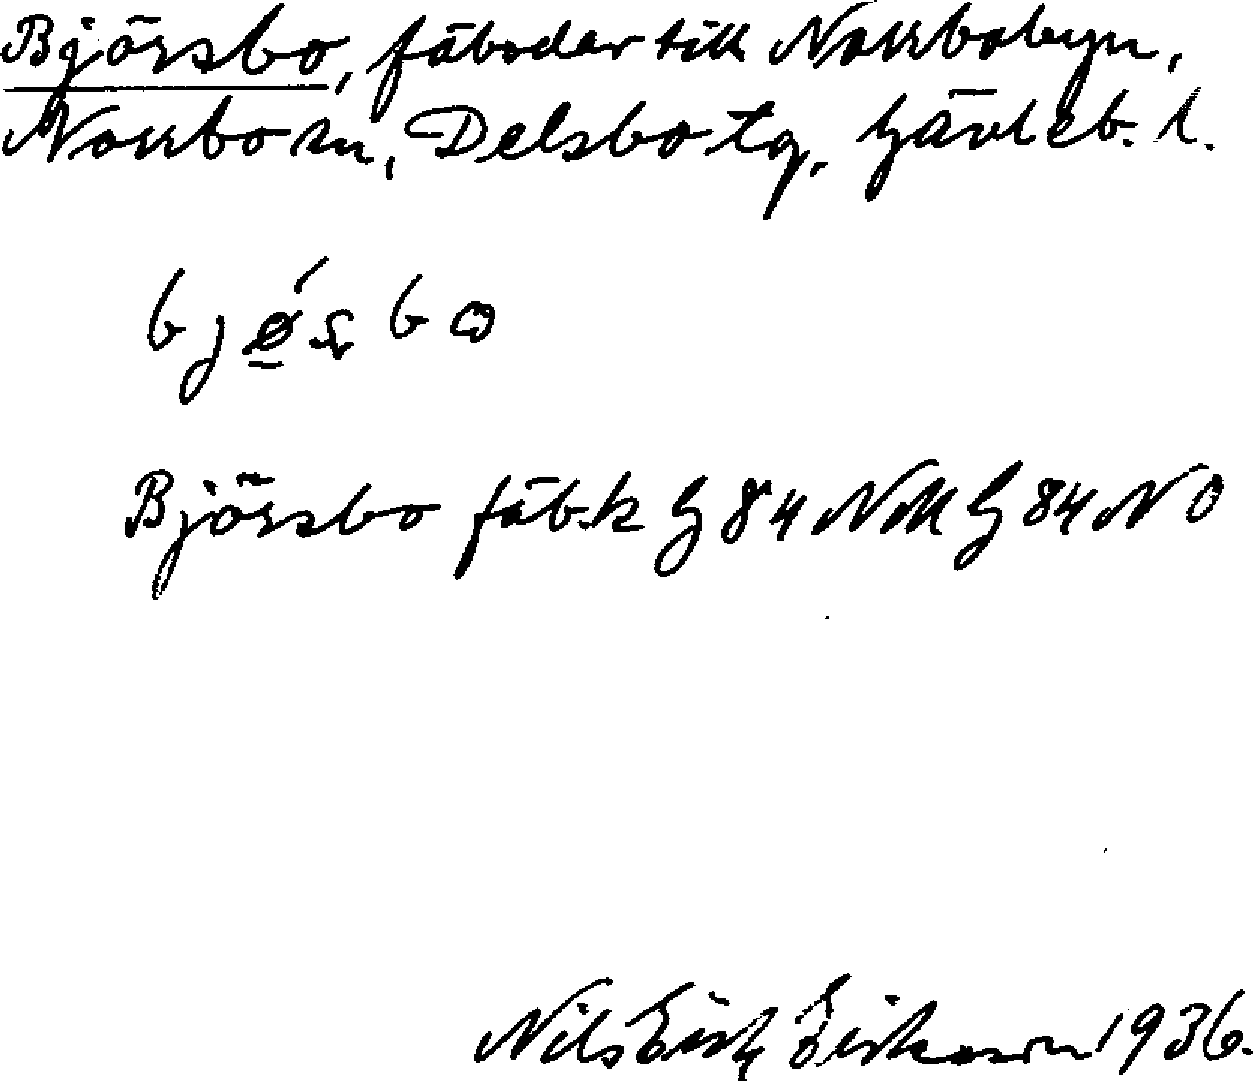 Björsbo, fäbodar till Norrbobyn,
Norrbo sn, Delsbo tg, Gävleb. l.
Björsbo fäb.k G 84 NM G 84 NO
Nils Erik Eriksson 1936.